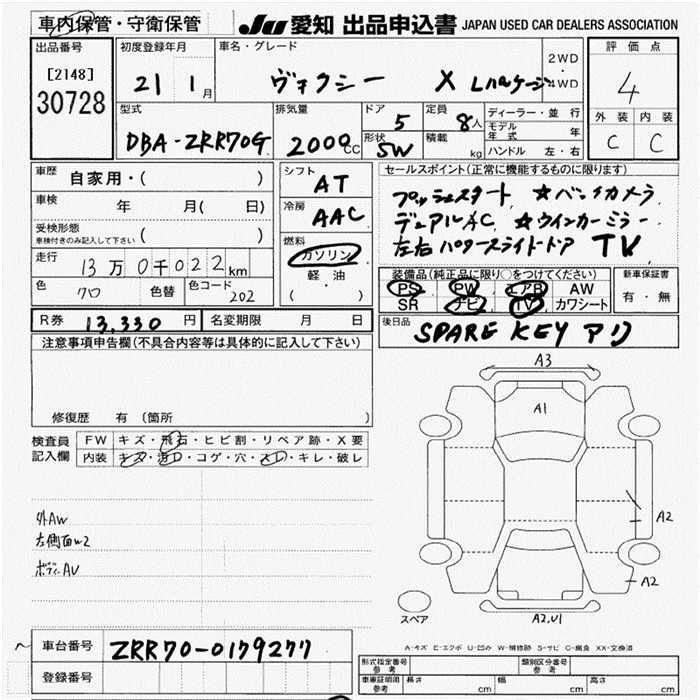 車内保管・守衛保管
JU 愛知 出品申込書 JAPAN USED CAR DEALERS ASSOCIATION
出品番号
[2148]
30728
初度登録年月
21 1月
車名・グレード
ヴォクシー X Lパッケージ
2WD
・
4WD
評価点
4
外装 内装
C C
型式
DBA-ZRR70G
排気量
2000cc
ドア
5
形状
SW
定員
8人
積載
kg
ディーラー・並行
モデル年式 年
ハンドル 左・右
車歴
自家用・( )
車検
年 月( 日)
受検形態
車検付きのみ記入して下さい ( )
走行
13万0千022km
色 クロ 色替 色コード 202
シフト
AT
冷房
AAC
燃料
ガソリン
軽・油
( )
セールスポイント(正常に機能するものに限ります)
プッシュスタート ☆バックカメラ
デュアルAC ☆ウインカーミラー
左右パワースライドドア TV
装備品(純正品に限り○をつけてください)
PS PW エアB AW
SR ナビ TV カワシート
新車保証書
有・無
R券 13,330円 名変期限 月 日
後日品
SPARE KEY アリ
注意事項申告欄(不具合内容等は具体的に記入して下さい)
修復歴 有 〔箇所
検査員
記入欄
FW キズ・飛石・ヒビ割・リペア跡・X要
内装 キズ・汚レ・コゲ・穴・スレ・キレ・破レ
外AW
左側面W2
ボディーAU
A3
A1
A2
A2
A2,U1
スペア
A-キズ E-エクボ U-凹み W-補修跡 S-サビ C-腐食 XX-交換済
車台番号 ZRR70-0179277
登録番号
形式指定番号
参考
類別区分番号
参考
車庫証明用
参考
長さ cm 幅 cm 高さ cm